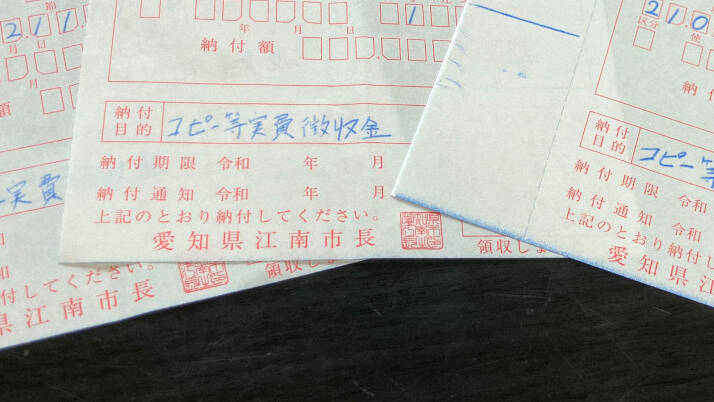 節
2.11
月 日
額
実費
和
付してください。
県江南市長
領収し
節
1
年 月 日
納付額
納付
目的
コピー等実費徴収金
納付期限 令和 年 月
納付通知 令和 年 月
上記のとおり納付してください。
愛知県江南市長
領収しま
210
区分
使
納付
目的
コピー等
納付期限 令和
納付通知 令和
上記のとおり納付し
愛知県江